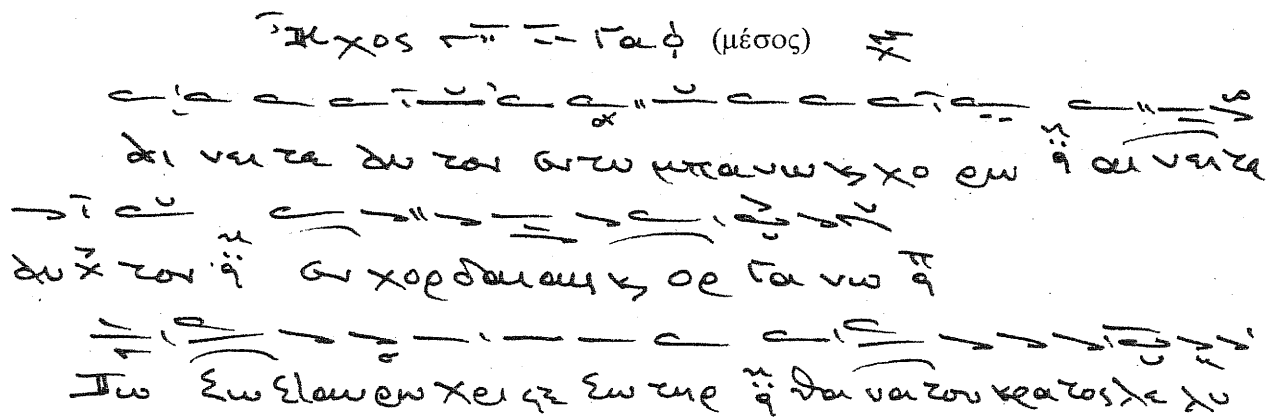 Ἦχος Γα (μέσος)
Αι νει τε αυ τον εν τυ μπανω κ χο ρω αι νει τε
αυ τον εν χορδαις κ ορ γα νω
τω ζω χρι στε σω τηρ θα να του κρατος λε λυ